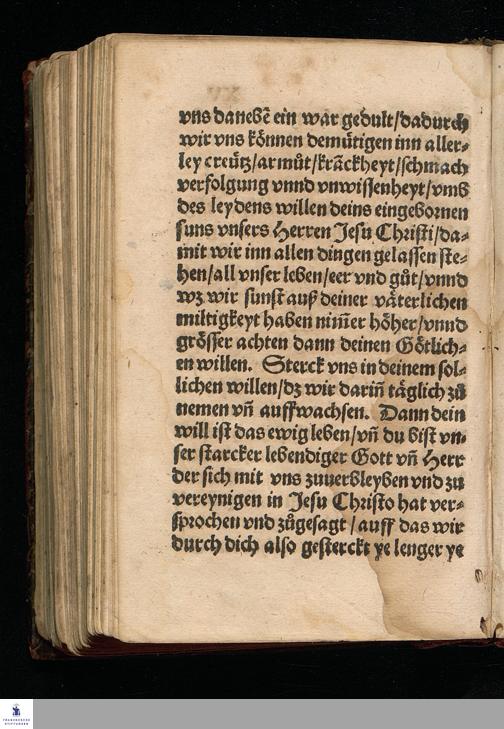 vns danebē ein war gedult/dadurch
wir vns können demuͤtigen inn aller⸗
ley creuͤtz/armuͦt/krāckheyt/schmach
verfolgung vnnd vnwissenheyt/vmb
des leydens willen deins eingebornen
suns vnsers Herren Jesu Christi/da⸗
mit wir inn allen dingen gelassen ste⸗
hen/all vnser leben/eer vnd guͦt/vnnd
wz wir sunst auß deiner vaͤterlichen
miltigkeyt haben nim̄er hoͤher/vnnd
groͤsser achten dann deinen Goͤtlich⸗
en willen. Sterck vns in deinem soͤl⸗
lichen willen/dz wir darin̄ taͤglich zuͦ
nemen vn̄ auffwachsen. Dann dein
will ist das ewig leben/vn̄ du bist vn⸗
ser starcker lebendiger Gott vn̄ Herr
der sich mit vns zuuerbleyben vnd zu
vereynigen in Jesu Christo hat ver⸗
sprochen vnd zuͦgesagt/auff das wir
durch dich also gesterckt ye lenger ye
FRANCKESCHE
STIFTUNGEN